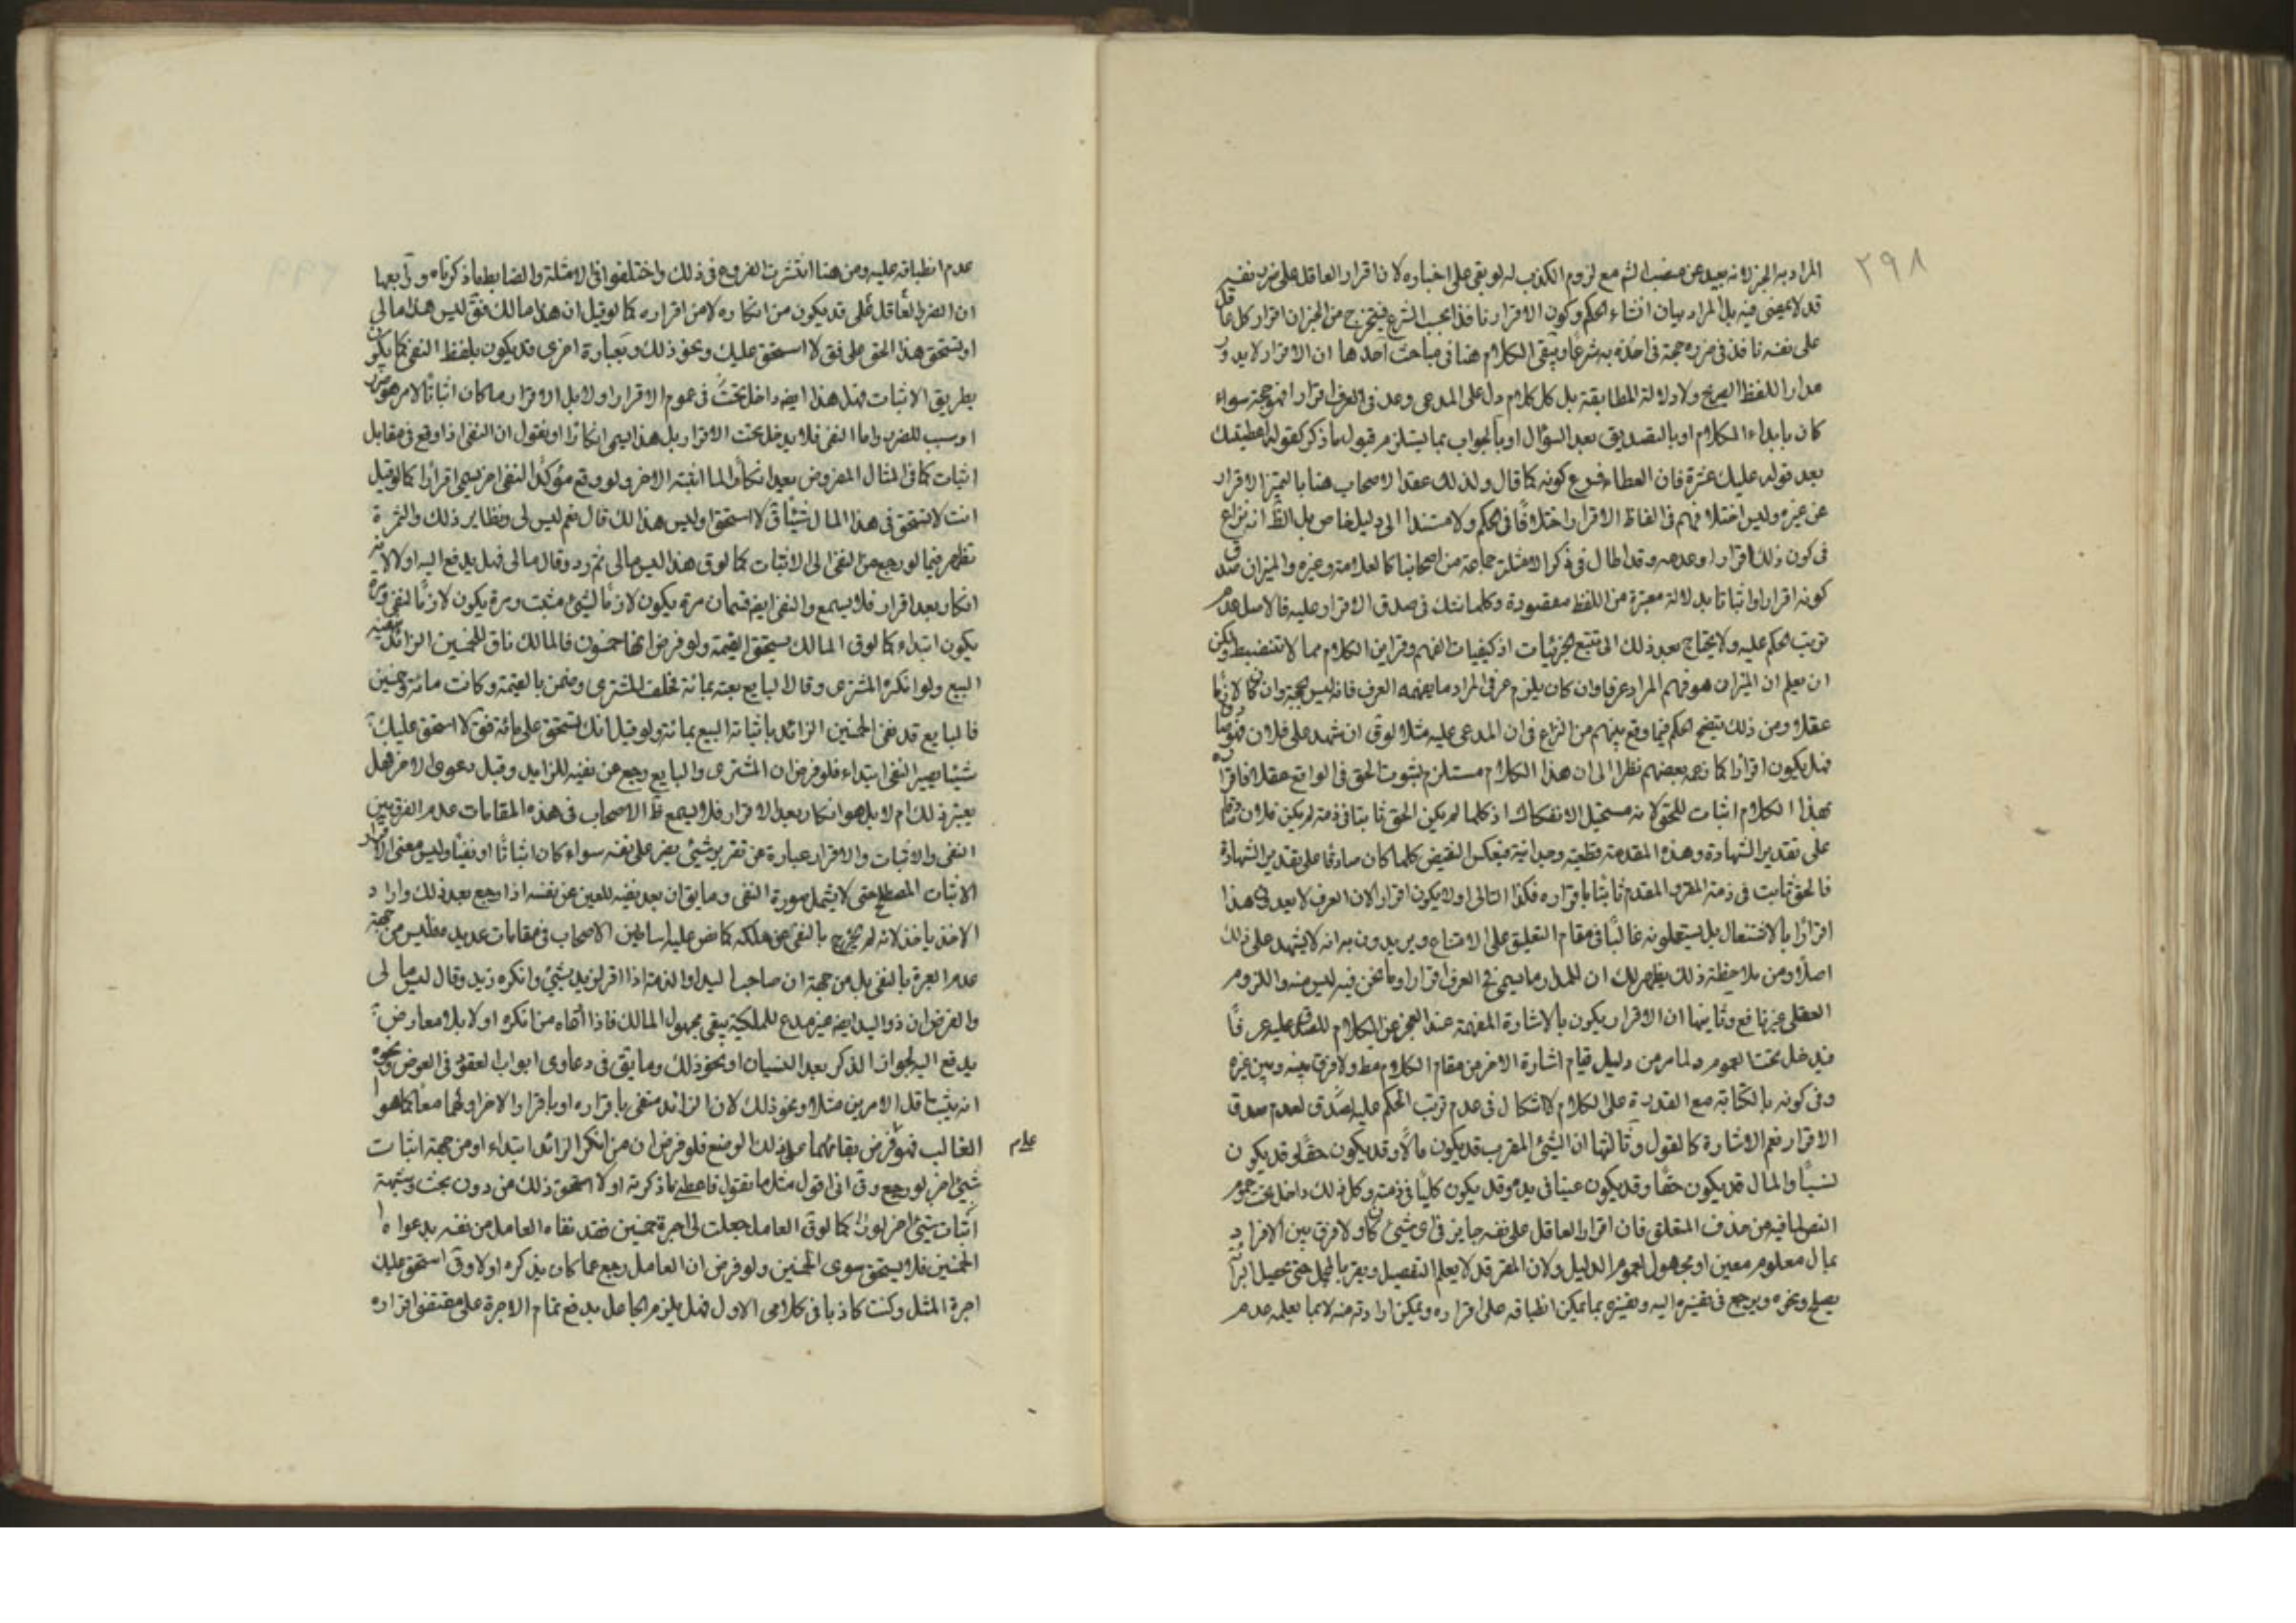 ٢٩٨
المراد به الخبر لانه بعيد عن منصب الشرع مع لزوم الكذب له لو بقى على اخباره لان اقرار العاقل على ضرر نفسه
قد لا يمضى فيه بل المراد بيان انشاء الحكم وكون الاقرار نافذا بحسب الشرع فيتخرج من الخبر ان اقرار كل عاقل
على نفسه نافذ فى ضرره حجة فى اخذه به شرعا ويبقى الكلام هنا فى مباحث احدها ان الاقرار لا يدور
مدار اللفظ الصريح ولا دلالة المطابقة بل كل كلام دل على المدعى وعد فى العرف اقرارا فهو حجة سواء
كان بابداء الكلام او بالتصديق بعد السؤال او بالجواب بما يستلزم قبول ما ذكر كقوله اعطيتك
بعد قوله عليك عشرة فان العطاء فرع كونه كما قال ولذلك عقد الاصحاب هنا بابا لتميز الاقرار
عن غيره وليس اختلافهم فى الفاظ الاقرار اختلافا فى الحكم ولا مستندا الى دليل خاص بل الظ انه نزاع
فى كون ذلك اقرارا وعدمه وقد اطال فى ذكر الامثلة جماعة من اصحابنا كالعلامة وغيره والميزان صدق
كونه اقرارا واثباتا بدلالة معتبرة من اللفظ مقصودة وكلما شك فى صدق الاقرار عليه فالاصل عدم
ترتب الحكم عليه ولا يحتاج بعد ذلك الى تتبع الجزئيات اذ كيفيات الفهم وقراين الكلام مما لا تنضبط ولكن
ان يعلم ان الميزان هو فهم المراد عرفا وان كان يلزم عرفى المراد ما يفهمه العرف فانه ليس بحجة وان كان لازما
عقلا ومن ذلك يتضح الحكم فيما وقع بينهم من النزاع فى ان المدعى عليه مثلا لوق ان شهد على فلان فهو صادق
فهل يكون اقرارا كما زعمه بعضهم نظرا الى ان هذا الكلام مستلزم لثبوت الحق فى الواقع عقلا فاقراره
بهذا الكلام اثبات للحق لانه مستحيل الانفكاك اذ كلما لم يكن الحق ثابتا فى ذمته لم يكن فلان صادقا
على تقدير الشهادة وهذه المقدمة قطعية وجدانية فبعكس النقيض كلما كان صادقا على تقدير الشهادة
فالحق ثابت فى ذمته المقر به المقدم ثابتا باقراره فكذا التالى او لا يكون اقرارا لان العرف لا يعد فى هذا
اقرارا بالاشتعال بل يستعلونه غالبا فى مقام التعليق على الامتناع ويريدون به انه لا يشهد على ذلك
اصلا ومن ملاحظة ذلك يظهر لك ان المدار ما يسمى فى العرف اقرارا وما نحن فيه ليس منه واللزوم
العقلى غير نافع وثانيها ان الاقرار يكون بالاشارة المفهمة عند العجز عن الكلام للصدق عليه عرفا
فيدخل تحت العموم ولما مر من دليل قيام اشارة الاخرس مقام الكلام مط ولا فرق بينه وبين غيره
وفى كونه بالكتابة مع القدرة على الكلام لا اشكال فى عدم ترتب الحكم عليه لعدم صدق
الاقرار نعم الاشارة كالقول وثالثها ان الشىء المقر به قد يكون مالا وقد يكون حقا وقد يكون
نسبا والمال قد يكون حقا وقد يكون عينا فى يده وقد يكون كليا فى ذمته وكل ذلك داخل تحت عموم
النص لما فيه من حذف المتعلق فان اقرار العاقل على نفسه جايز فى اى شىء كان ولا فرق بين الاقرار
بمال معلوم معين او مجهول لعموم الدليل ولان المقر قد لا يعلم التفصيل ويقر بالمجمل حتى يحصل البرائة
بصلح ونحوه ويرجع فى تفسيره اليه وتفسيره بما يمكن انطباقه على اقراره ويمكن ارادته منه لا بما يعلمه عدم
عدم انطباقه عليه ومن هنا انتشرت الفروع فى ذلك واختلفوا فى الامثلة والضابط ما ذكرناه ورابعها
ان الضرر العاقل على قد يكون من انكاره لا من اقراره كما لو قيل ان هذا مالك فق ليس هذا مالى
او تستحق هذا الحق على فق لا استحق عليك ونحو ذلك وبعبارة اخرى قد يكون بلفظ النفى كما يكون
بطريق الاثبات فهل هذا ايضه داخل تحت فى عموم الاقرار اولا بل الاقرار ما كان اثباتا لامر هو ضرر
او سبب للضرر واما النفى فلا يدخل تحت الاقرار بل هذا يسمى انكارا او نقول ان النفى اذا وقع فى مقابل
اثبات كما فى المثال المفروض يعد انكارا لما اثبته الاخر ولو وقع مؤكدا لنفى اخر يسمى اقرارا كما لو قيل
انت لا تستحق فى هذا المال شيئا فق لا استحق او ليس هذا لك قال نعم ليس لى ونظاير ذلك والثمرة
تظهر فيما لو رجع من النفى الى الاثبات كما لوق هذا ليس مالى ثم رد وقال مالى فهل يدفع اليه او لا لانه
انكار بعد اقرار فلا يسمع والنفى ايضه قسمان مرة يكون لازما لشىء مثبت ومرة يكون لازما لنفى ومرة
يكون ابتداء كما لوق المالك يستحق القيمة ولو فرض انها خمسون فالمالك ناف للخمسين الزائد
البيع ولو انكره المشترى وقال البايع بعته بمائة فحلف المشترى وضمن بالقيمة وكانت مائة وخمسين
فالبايع قد نفى الخمسين الزائد باثباته البيع بمائة ولو قيل انك تستحق على مائة فق لا استحق عليك
شيئا يصير النفى ابتداء فلو فرض ان المشترى والبايع رجع عن نفيه للزايد وقبل دعوى الاخر فهل
يعتبر ذلك ام لا بل هو انكار بعد الاقرار فلا يسمع ظ الاصحاب فى هذه المقامات عدم الفرق بين
النفى والاثبات والاقرار عبارة عن تقرير شىء يضر على نفسه سواء كان اثباتا او نفيا وليس معنى الاقرار
الاثبات المصطلح حتى لا يشمل صورة النفى وما يق ان بعد نفيه للعين عن نفسه اذا رجع بعد ذلك واراد
الاخذ ياخذ لانه لم يخرج بالنفى عن ملكه كما نص عليه اساطين الاصحاب فى مقامات عديدة فليس من جهة
عدم العبرة بالنفى بل من جهة ان صاحب اليد او الذمة اذا اقر لزيد بشىء وانكره زيد وقال ليس مالى
والفرض ان ذو اليد ايضه غير مدع للملكية يبقى مجهول المالك فاذا ادعاه من انكره اولا بلا معارض
يدفع اليه لجواز الذكر بعد النسيان او نحو ذلك وما يق فى دعاوى ابواب العقود فى العوض ونحوه
انه يثبت اقل الامرين مثلا ونحو ذلك لان الزائد منفى باقراره او باقرار الاخر او لهما معا كما هو
الغالب فهو فرض بقائهما على ذلك الوضع فلو فرض ان من انكر الزائد ابتداء او من جهة اثبات
علم
شىء اخر لو رجع وق انى اقول مثل ما تقول فاعطنى ما ذكرته اولا استحق ذلك من دون بحث وشبهة
اثبات شىء اخر كما لوق العامل جعلت لى اجرة خمسين فقد نفاه العامل من نفسه بدعواه
الخمسين فلا يستحق سوى الخمسين ولو فرض ان العامل رجع عما كان يذكره اولا وق استحق عليك
اجرة المثل وكنت كاذبا فى كلامى الاول فهل يلزم الجاعل بدفع تمام الاجرة على مقتضى اقراره